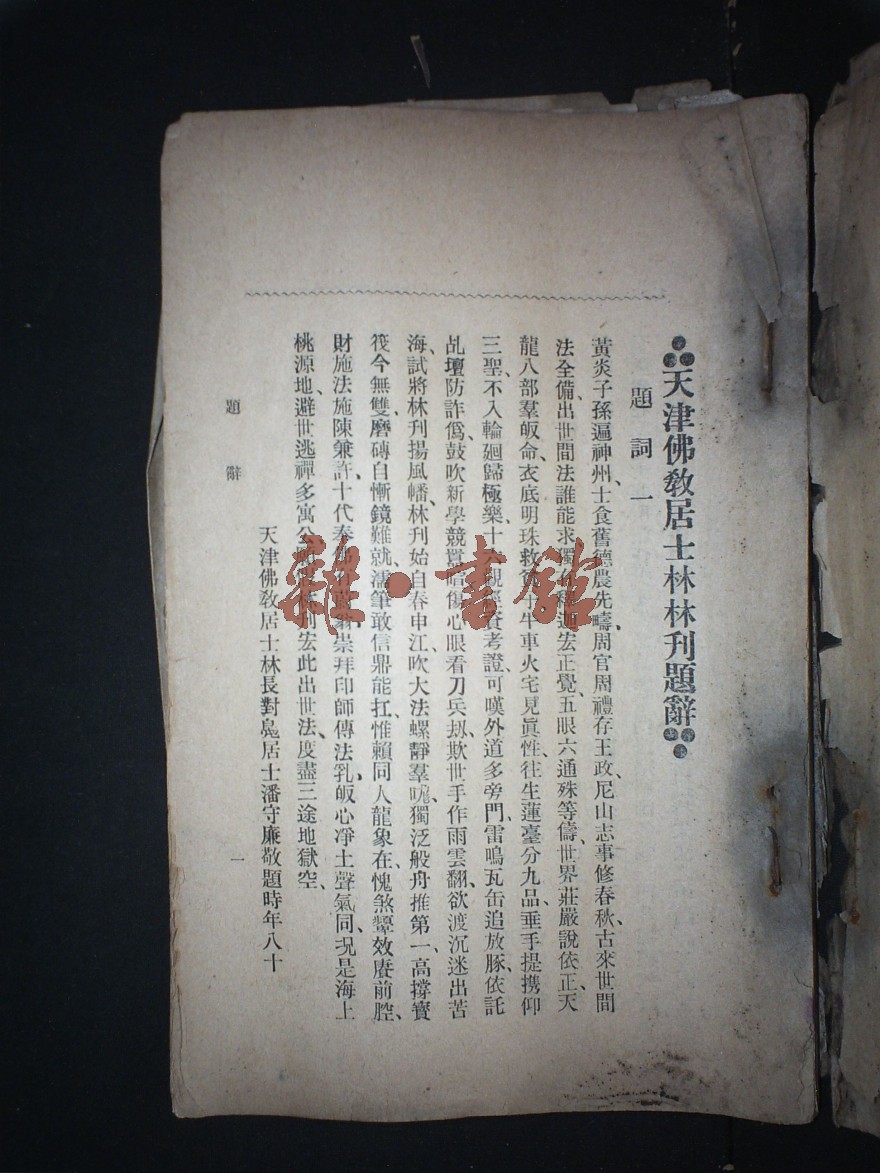 天津佛敎居士林林刊題辭
題詞一
黃炎子孫遍神州、士食舊德農先疇、周官周禮存王政、尼山志事修春秋、古來世間
法全備、出世間法誰能求、獨 宏正覺、五眼六通殊等儔、世界莊嚴說依正、天
龍八部羣皈命、衣底明珠救 子、牛車火宅見眞性、往生蓮臺分九品、垂手提携仰
三聖、不入輪廻歸極樂、十六觀經資考證、可嘆外道多旁門、雷鳴瓦缶追放豚、依託
乩壇防詐僞、鼓吹新學競 傷心眼看刀兵刼、欺世手作雨雲翻、欲渡沉迷出苦
海、試將林刊揚風幡、林刊始自春申江、吹大法螺靜羣哤、獨泛般舟推第一、高撐寶
筏今無雙、磨磚自慚鏡難就、濡筆敢信鼎能扛、惟賴同人龍象在、愧煞顰效賡前腔、
財施法施陳兼許、十代奉佛 崇拜印師傳法乳、皈心凈土聲氣同、况是海上
桃源地、避世逃禪多寓公、 林刊宏此出世法、度盡三途地獄空、
天津佛敎居士林長對鳧居士潘守廉敬題時年八十
題辭
一
雜·書館